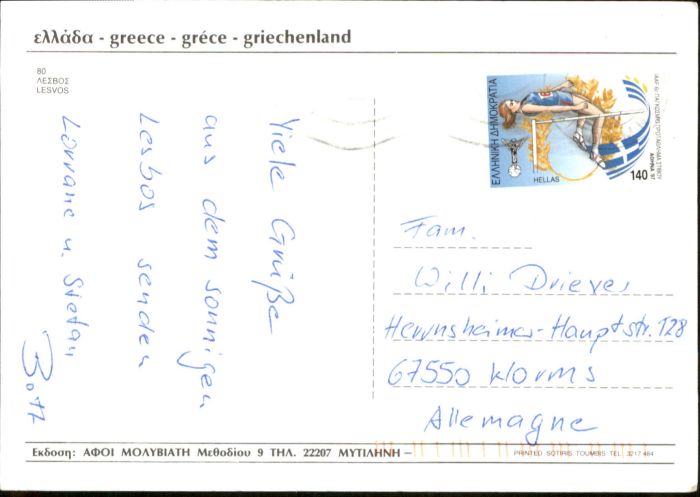 ελλάδα - greece - gréce - griechenland
80
ΛΕΣΒΟΣ
LESVOS
Viele Grüße
aus dem sonnigen
Lesbos senden
Lorrane u. Stefan
ΕΛΛΗΝΙΚΗ ΔΗΜΟΚΡΑΤΙΑ
HELLAS
140
ΑΘΗΝΑ 97
Fam.
Willi Driever
Herrnsheimer-Hauptstr. 128
67550 Worms
Allemagne
Εκδοση: ΑΦΟΙ ΜΟΛΥΒΙΑΤΗ Μεθοδίου 9 ΤΗΛ. 22207 ΜΥΤΙΛΗΝΗ -
PRINTED SOTIRIS TOUMBIS TEL. 3217 464